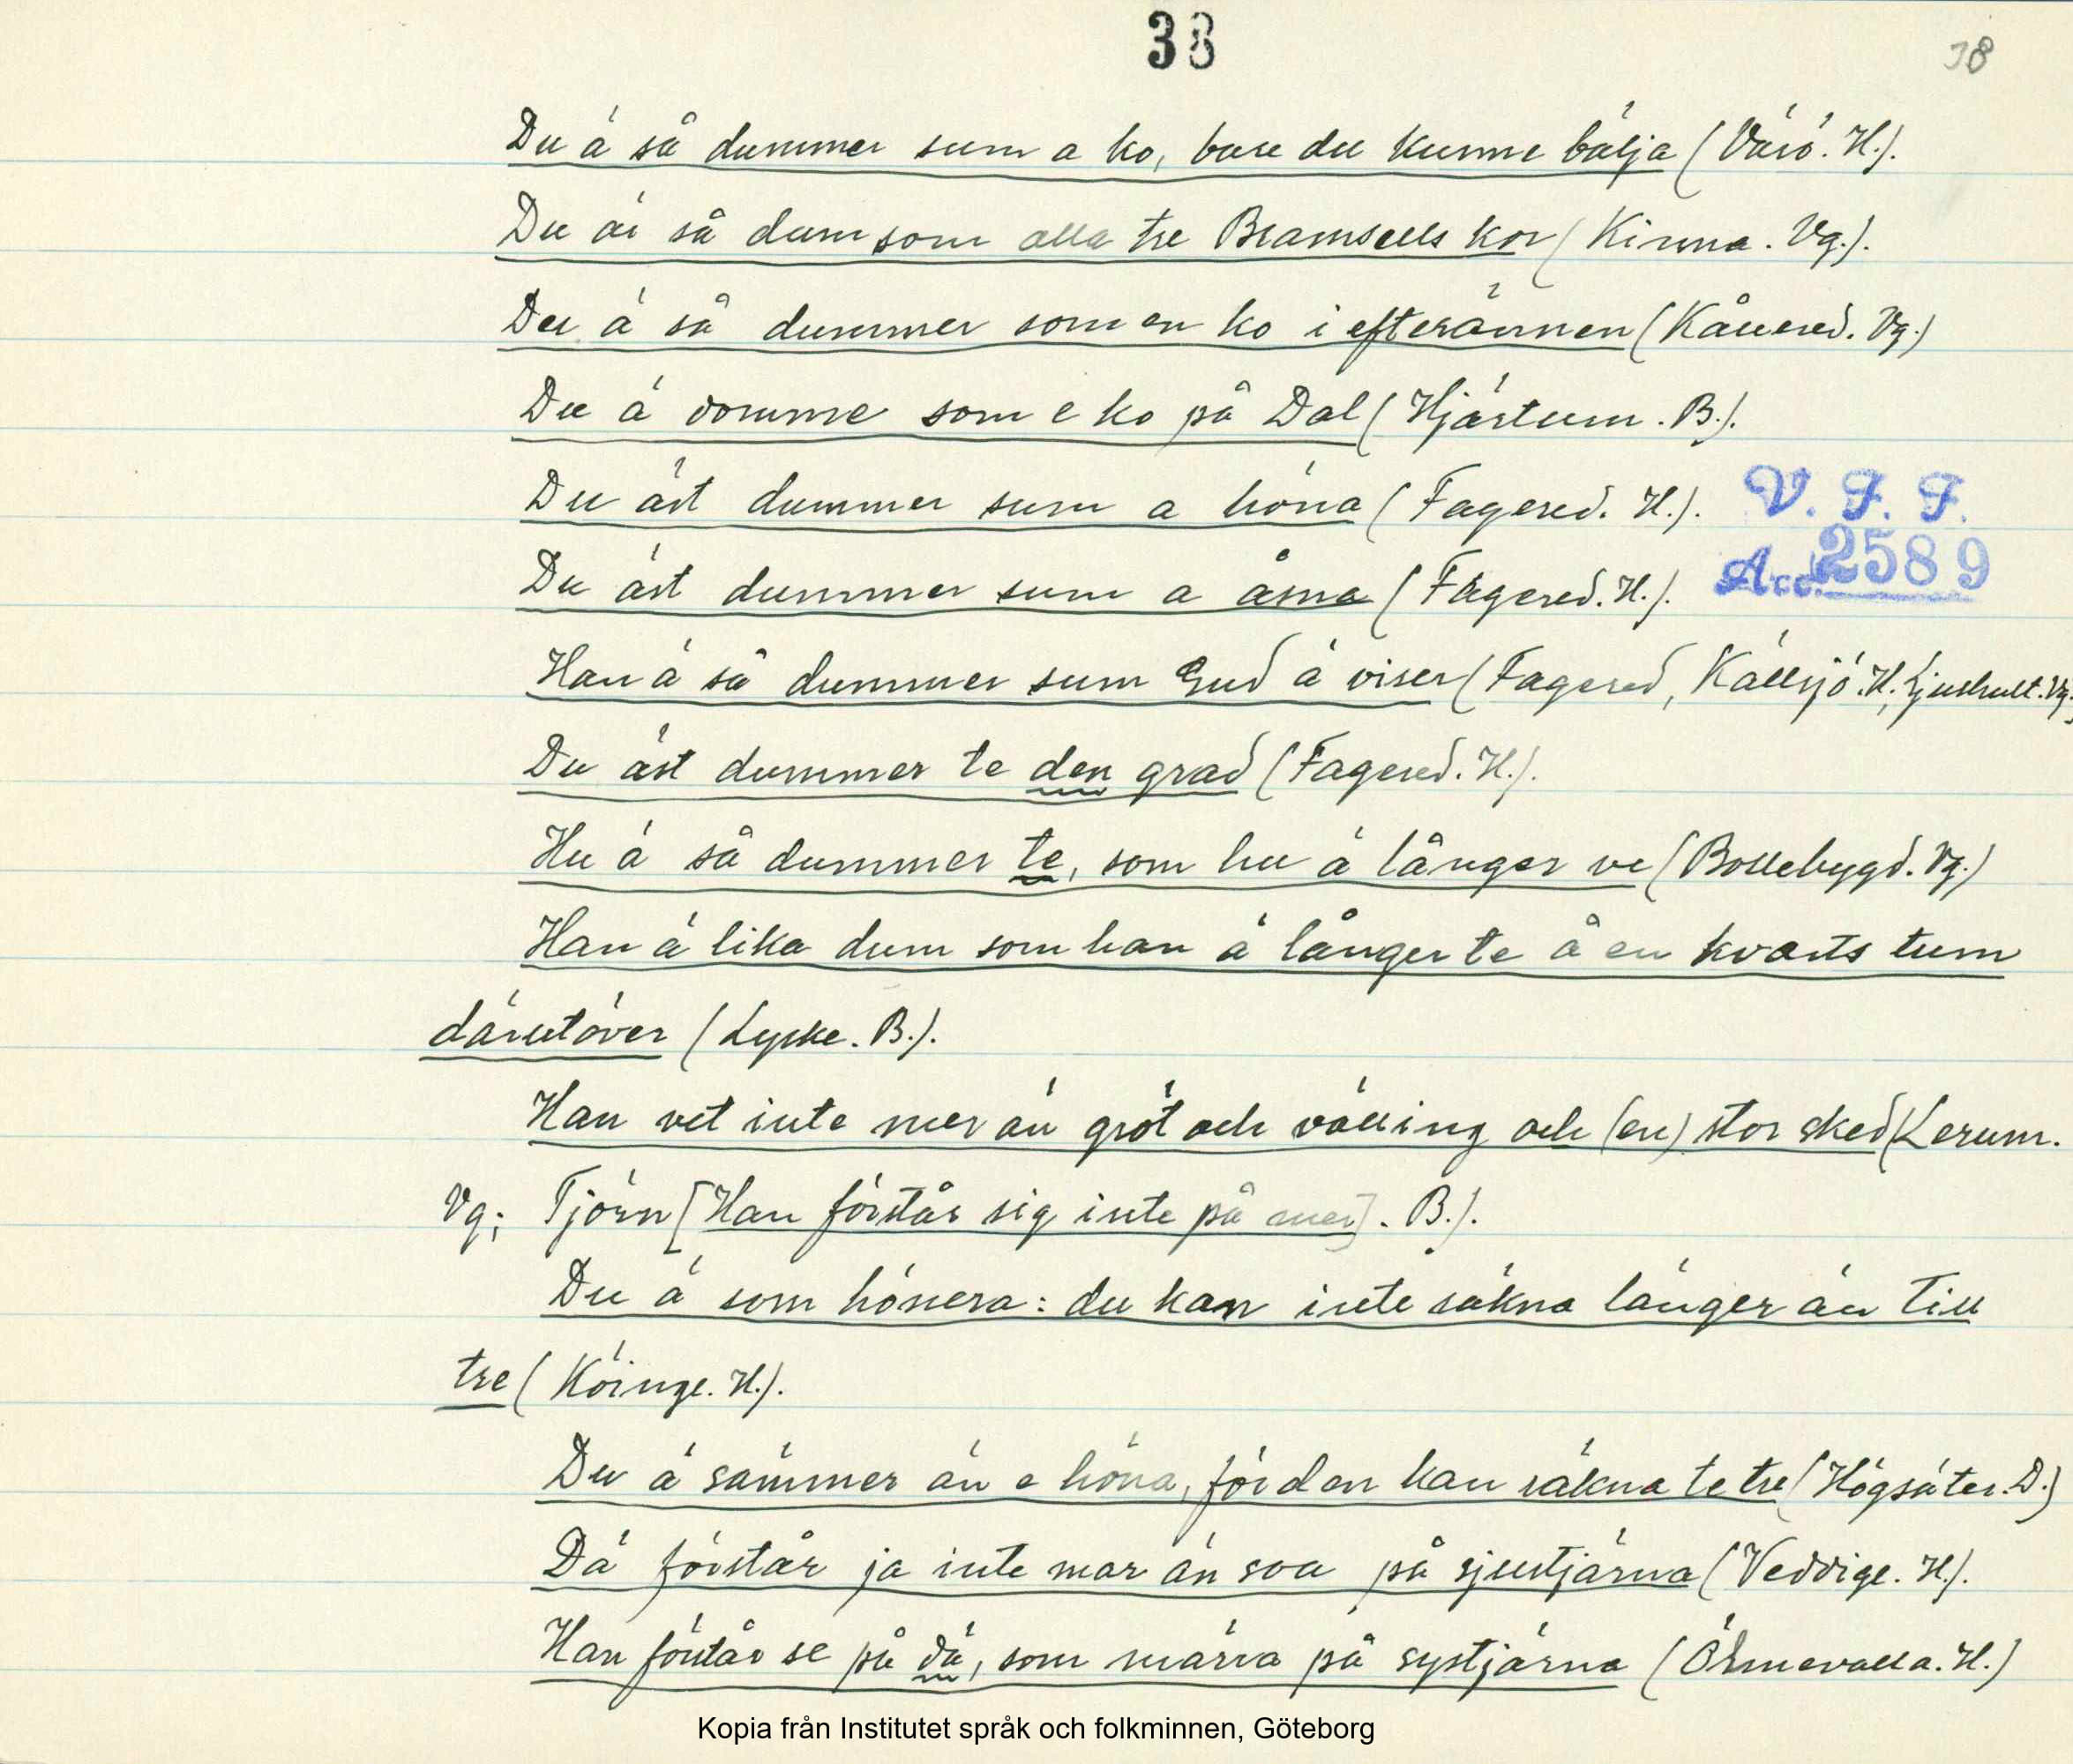 38
38
Du ä så dummer sum a ko, bare du kunne bälja (Värö. H.).
Du är så dum som alla tre Bramsells kor (Kinna. Vg.).
Du ä så dummer som en ko i efterännen (Kållered. Vg.)
Du ä domme som e ko på Dal (Hjärtum. B.).
Du äst dummer sum a höna (Fagered. H.).
V. F. F.
Du äst dummer sum a åma (Fagered. H.).
Acc. 2589
Han ä så dummer sum Gud ä viser (Fagered, Källsjö. H.; Ljushult. Vg.)
Du äst dummer te den grad (Fagered. H.).
Hu ä så dummer te, som hu ä långer ve (Bollebygd. Vg.)
Han ä lika dum som han ä långer te å en kvarts tum
därutöver (Lycke. B.).
Han vet inte mer än gröt och välling och (en) stor sked (Lerum.
Vg; Tjörn [Han förstår sig inte på mer]. B.).
Du ä som hönera: du kan inte räkna länger än till
tre (Köinge. H.).
Du ä sämmer än e höna, för den kan räkna te tre (Högsäter. D.)
Dä förstår ja inte mar än soa på sjustjärna (Veddige. H.).
Han förstår se på dä, som märra på systjärna (Ölmevalla. H.)
Kopia från Institutet språk och folkminnen, Göteborg